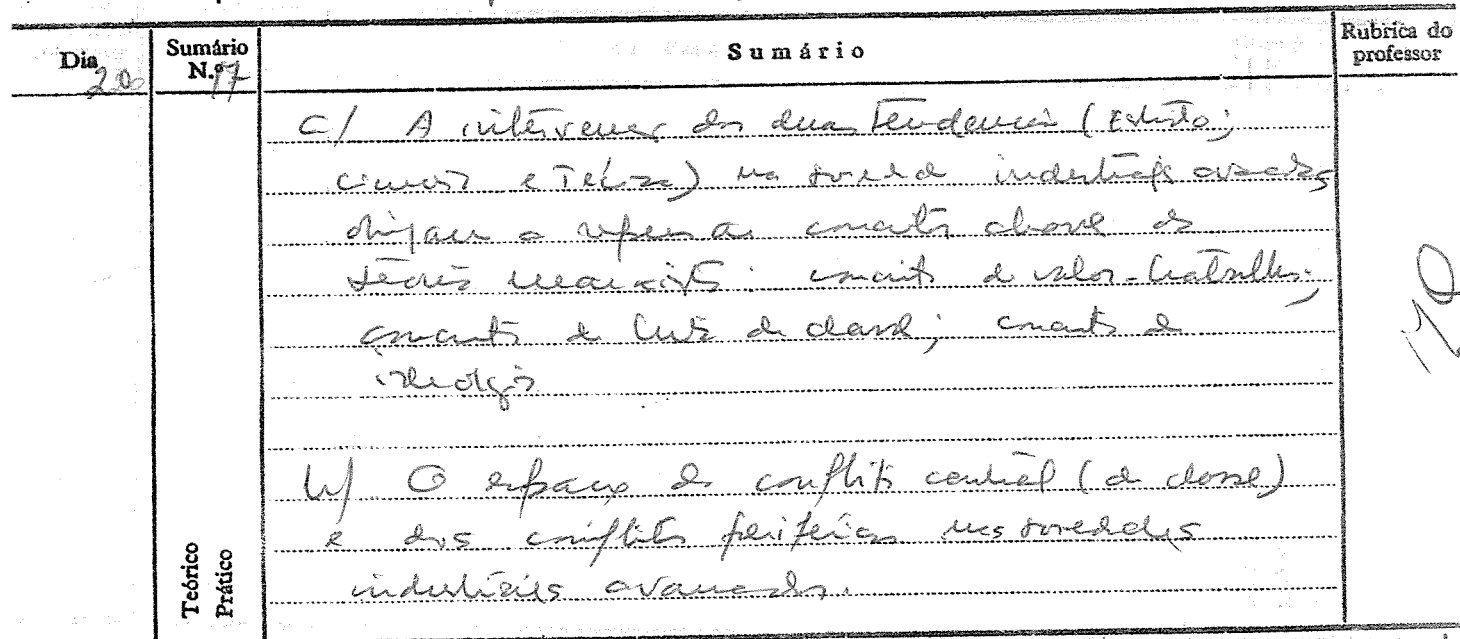 Dia Sumário N.º 17 Sumário Rubrica do professor
c/ A intervenção das duas tendências (Estado;
ciência e Técnica) nas industriais avançadas
obrigam a repensar conceitos chave da
teoria marxista: conceito de valor-trabalho;
conceito de luta de classe; conceito de
ideologia
b/ O espaço do conflito central (de classe)
e dos conflitos periféricos nas sociedades
industriais avançadas.
Teórico
Prático